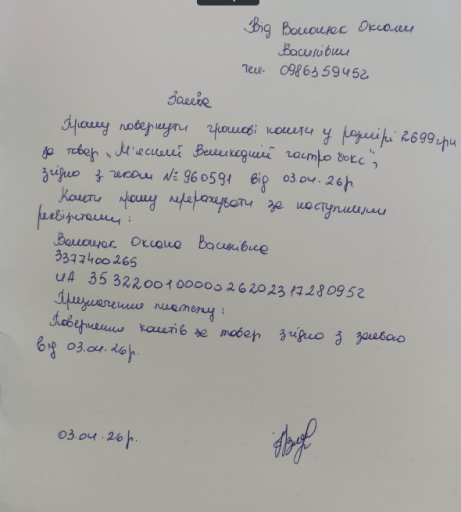 Від Волощук Оксани
Василівни
тел. 0986359452
Заява
Прошу повернути грошові кошти у розмірі 2699грн
за товар „М'ясний Великодній гастро бокс",
згідно з чеком №960591 від 03.04.26р
Кошти прошу перерахувати за наступними
реквізитами:
Волощук Оксана Василівна
3377400265
UA 353220010000026202317280952
Призначення платежу:
Повернення коштів за товар згідно з заявою
від 03.04.26р.
03.04.26р.